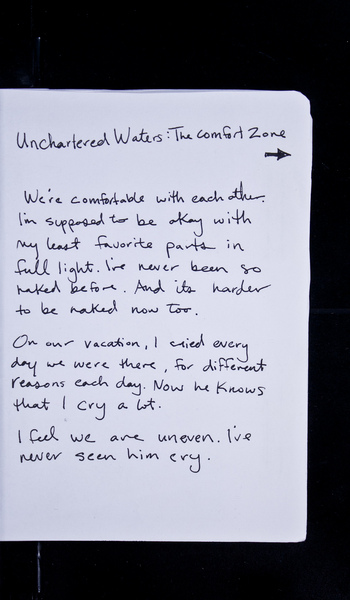 Unchartered Waters: The Comfort Zone
We're comfortable with each other.
I'm supposed to be okay with
my least favorite parts in
full light. I've never been so
naked before. And its harder
to be naked now too.
On our vacation, I cried every
day we were there, for different
reasons each day. Now he knows
that I cry a lot.
I feel we are uneven. I've
never seen him cry.